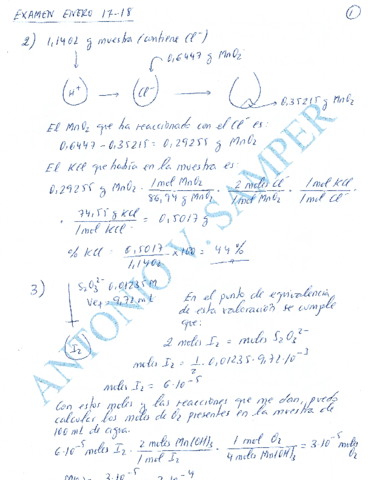 EXAMEN ENERO 17-18
1
2) 1,1402 g muestra (contiene Cl⁻)
0,6447 g MnO₂
H⁺ → Cl⁻ →
0,35215 g MnO₂
El MnO₂ que ha reaccionado con el Cl⁻ es:
0,6447 - 0,35215 = 0,29255 g MnO₂
El KCl que había en la muestra es:
0,29255 g MnO₂ · 1 mol MnO₂ / 86,94 g MnO₂ · 2 moles Cl⁻ / 1 mol MnO₂ · 1 mol KCl / 1 mol Cl⁻ ·
· 74,55 g KCl / 1 mol KCl = 0,5017 g
% KCl = 0,5017 / 1,1402 × 100 = 44%
3)
S₂O₃²⁻ 0,01235 M
= 9,72 mL
I₂
En el punto de equivalencia
de esta valoración se cumple
que:
2 moles I₂ = moles S₂O₃²⁻
moles I₂ = 1/2 · 0,01235 · 9,72 · 10⁻³
moles I₂ = 6 · 10⁻⁵
Con estos moles y las reacciones que me dan, puedo
calcular los moles de O₂ presentes en la muestra de
100 mL de agua.
6 · 10⁻⁵ moles I₂ · 2 moles Mn(OH)₃ / 1 mol I₂ · 1 mol O₂ / 4 moles Mn(OH)₃ = 3 · 10⁻⁵ moles O₂
ANTONIO V. SAMPER